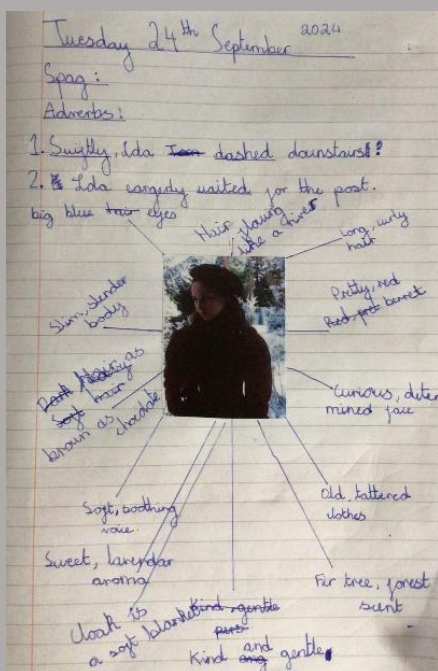 Tuesday 24th September 2024
Spag:
Adverbs:
1. Swiftly, Ida dashed downstairs!
2. Ida eargedy waited for the post.
big blue hair eyes
Hair, flowing
like a river
Long, curly
hair
Slim, slender
body
Pretty, red
Red, pret barret
Dark Hair as
Soft hair
brown as
chocolate
Curious, deter
mined face
Soft, soothing
voice.
Old, tattered
clothes
Sweet, lavendar
aroma
Fir tree, forest
scent
Cloak is
a soft blanket
Kind, gentle
pers
Kind and gentle